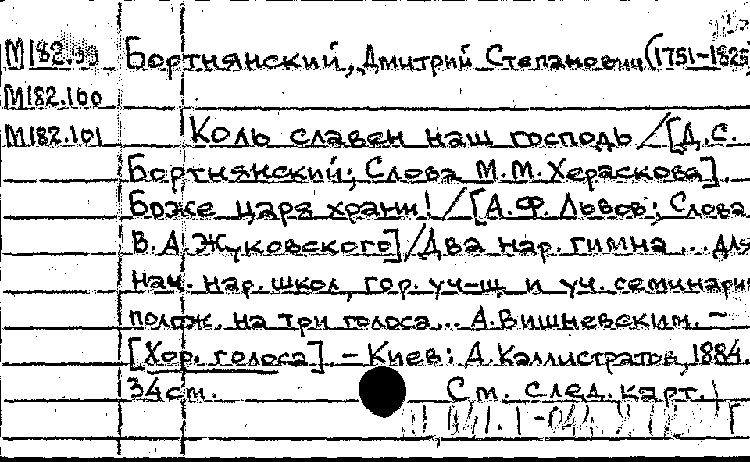 М182.99 Бортнянский, Дмитрий Степанович (1751-1825
М182.100
М182.101 Коль славен наш господь / [Д.С.
Бортнянский; Слова М.М. Хераскова].
Боже царя храни! / [А.Ф. Львов; Слова
В.А. Жуковского] / Два нар. гимна ... для
нач. нар. школ, гор. уч-щ и уч. семинарий
полож. на три голоса... А. Вишневским. –
[Хор. голоса]. – Киев: Д. Каллистратов, 1884.
34 см. См. след. карт.